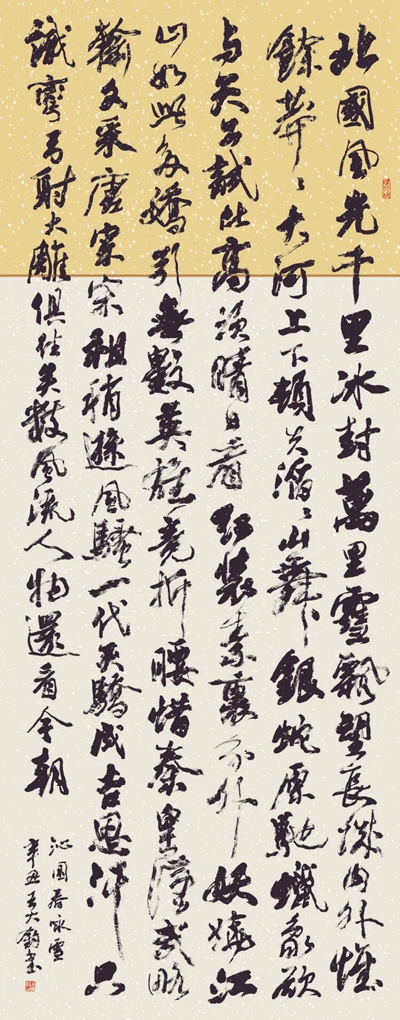 北國風光千里冰封萬里雪飄望長城内外惟
餘莽〻大河上下頓失滔〻山舞銀蛇原馳蠟象欲
与天公試比高須晴日看紅裝素裹分外妖嬈江
山如此多嬌引無數英雄竞折腰惜秦皇漢武略
輸文采唐宗宋祖稍遜風騷一代天驕成吉思汗只
識彎弓射大雕俱往矣數風流人物還看今朝
沁園春咏雪
辛丑王大書